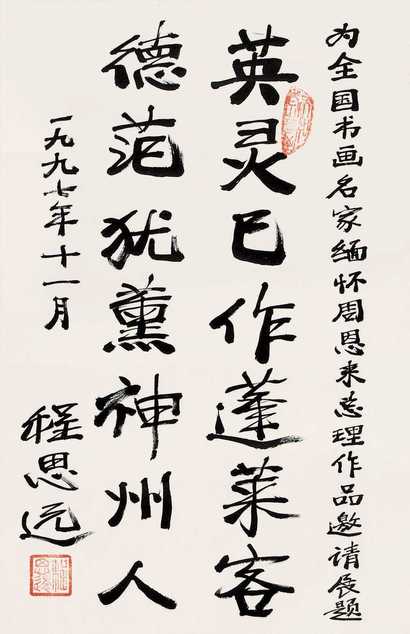 为全国书画名家缅怀周恩来总理作品邀请展题
英灵已作蓬莱客
德范犹薰神州人
一九九七年十一月
程思远